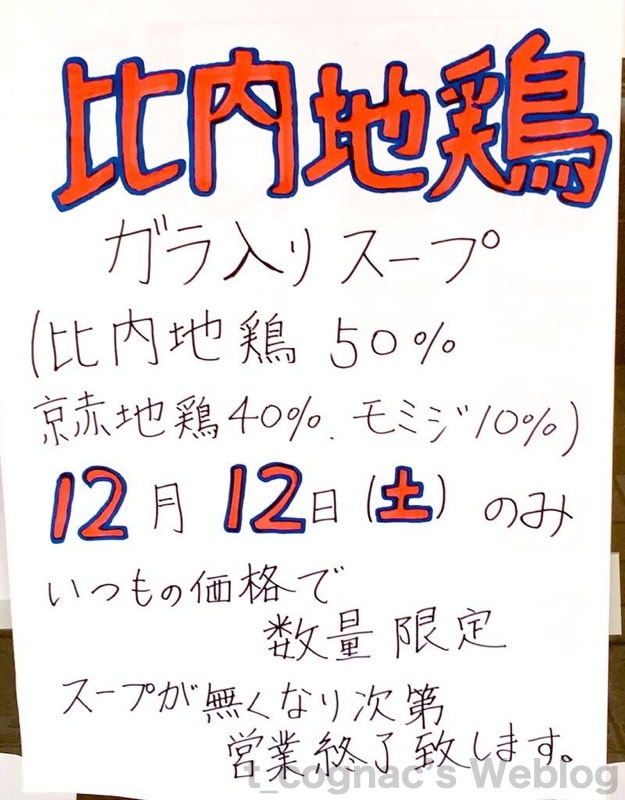 比内地鶏
ガラ入りスープ
(比内地鶏 50%
京赤地鶏40%、モミジ10%)
12月 12日(土)のみ
いつもの価格で
数量限定
スープが無くなり次第
営業終了致します。
t_cognac's Weblog